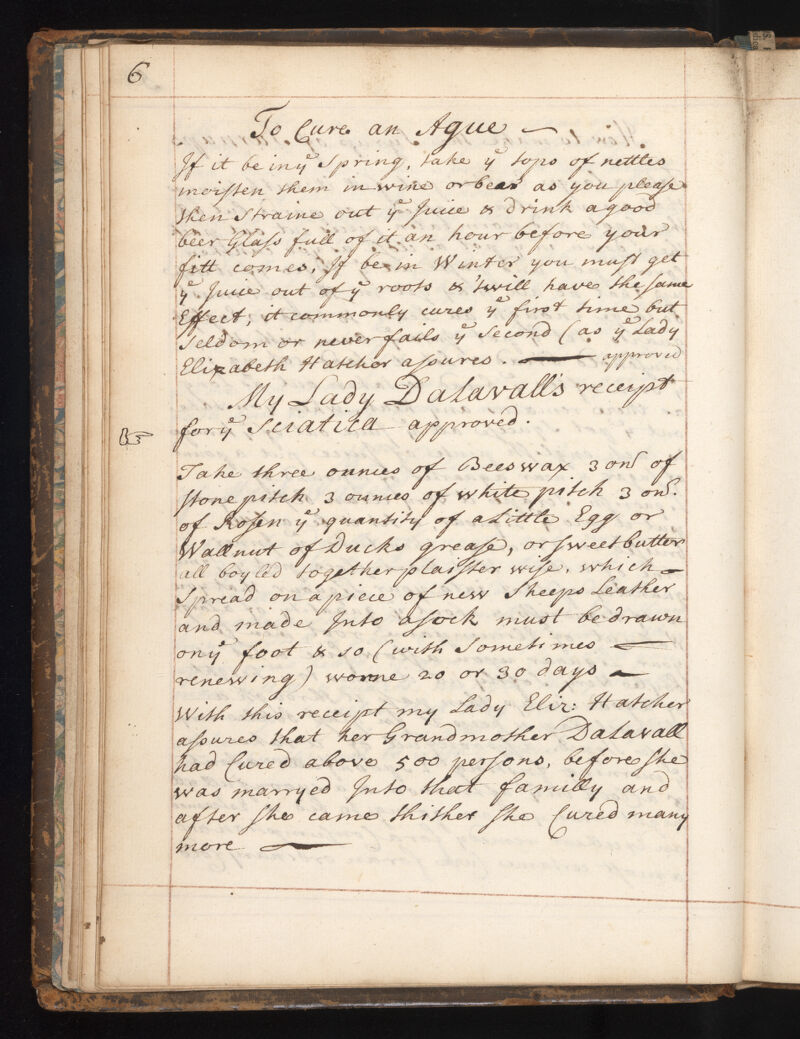 6
To Cure an Ague
If it be in yͤ Spring, take yͤ tops of nettles
moisten them in wine or bear as you please
then Straine out yͤ Juice & drink a good
beer Glass full of it an hour before your
fitt comes; If be in Winter you must get
yͤ Juice out of yͤ roots & 'twill have the same
Effect; it commonly cures yͤ first time but
seldom or never fails yͤ Second (as yͤ Lady
Elizabeth Hatcher assures. — approved
My Lady Dalavall's receipt
for yͤ Sciatica approved.
Take three ounces of Beeswax 3 on. of
stone pitch 3 ounces of white pitch 3 on.
of Rosen yͤ quantity of a Little Egg or
Wallnut of Ducks grease, or sweet butter
all boyled together plaister wise, which —
Spread on a piece of new Sheeps Leather
and made Into a sock must be drawn
on yͤ foot & so (with Sometimes —
renewing) worne 20 or 30 days —
With this receipt my Lady Eliz: Hatcher
assures that her Grandmother Dalavall
had Cured above 500 persons, before she
was marryed Into that familly and
after she came thither she Cured many
more —